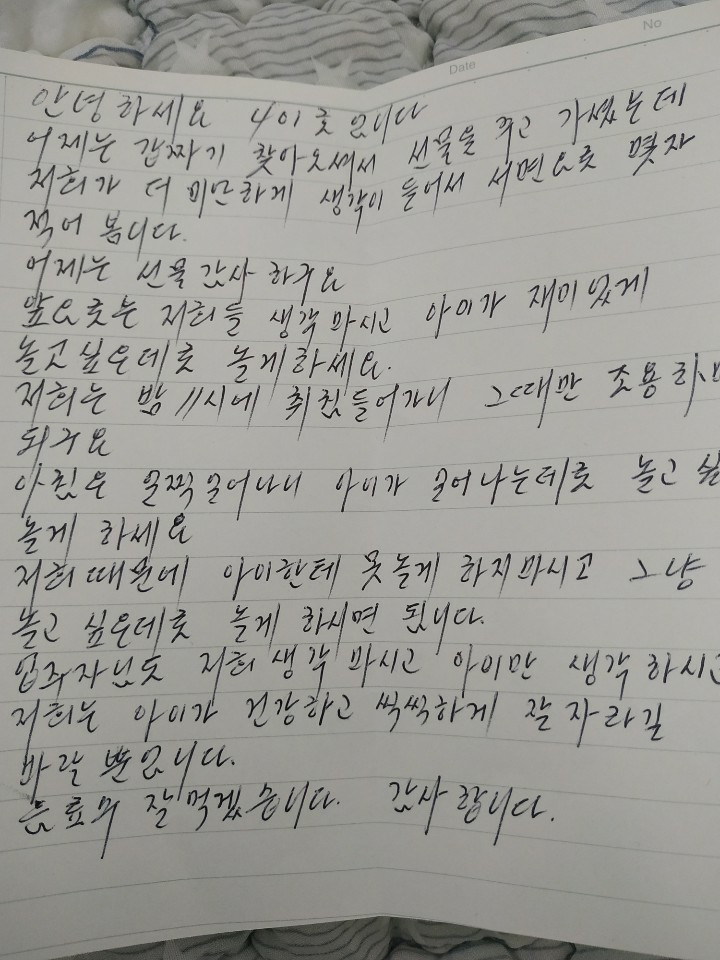 No
Date
안녕하세요 401호 입니다
어제는 갑짜기 찾아오셔서 선물을 주고 가셨는데
저희가 더 미안하게 생각이 들어서 서면으로 몇자
적어 봅니다.
어제는 선물 감사 하구요
앞으로는 저희들 생각 마시고 아이가 재미있게
놀고싶은데로 놀게하세요.
저희는 밤 11시에 취침들어가니 그때만 조용하면
되구요
아침은 일찍일어나니 아이가 일어나는데로 놀고 싶
놀게 하세요
저희때문에 아이한테 못놀게 하지마시고 그냥
놀고 싶은데로 놀게 하시면 됩니다.
입주자님도 저희 생각 마시고 아이만 생각 하시고
저희는 아이가 건강하고 씩씩하게 잘 자라길
바랄 뿐입니다.
음료수 잘먹겠습니다. 감사합니다.